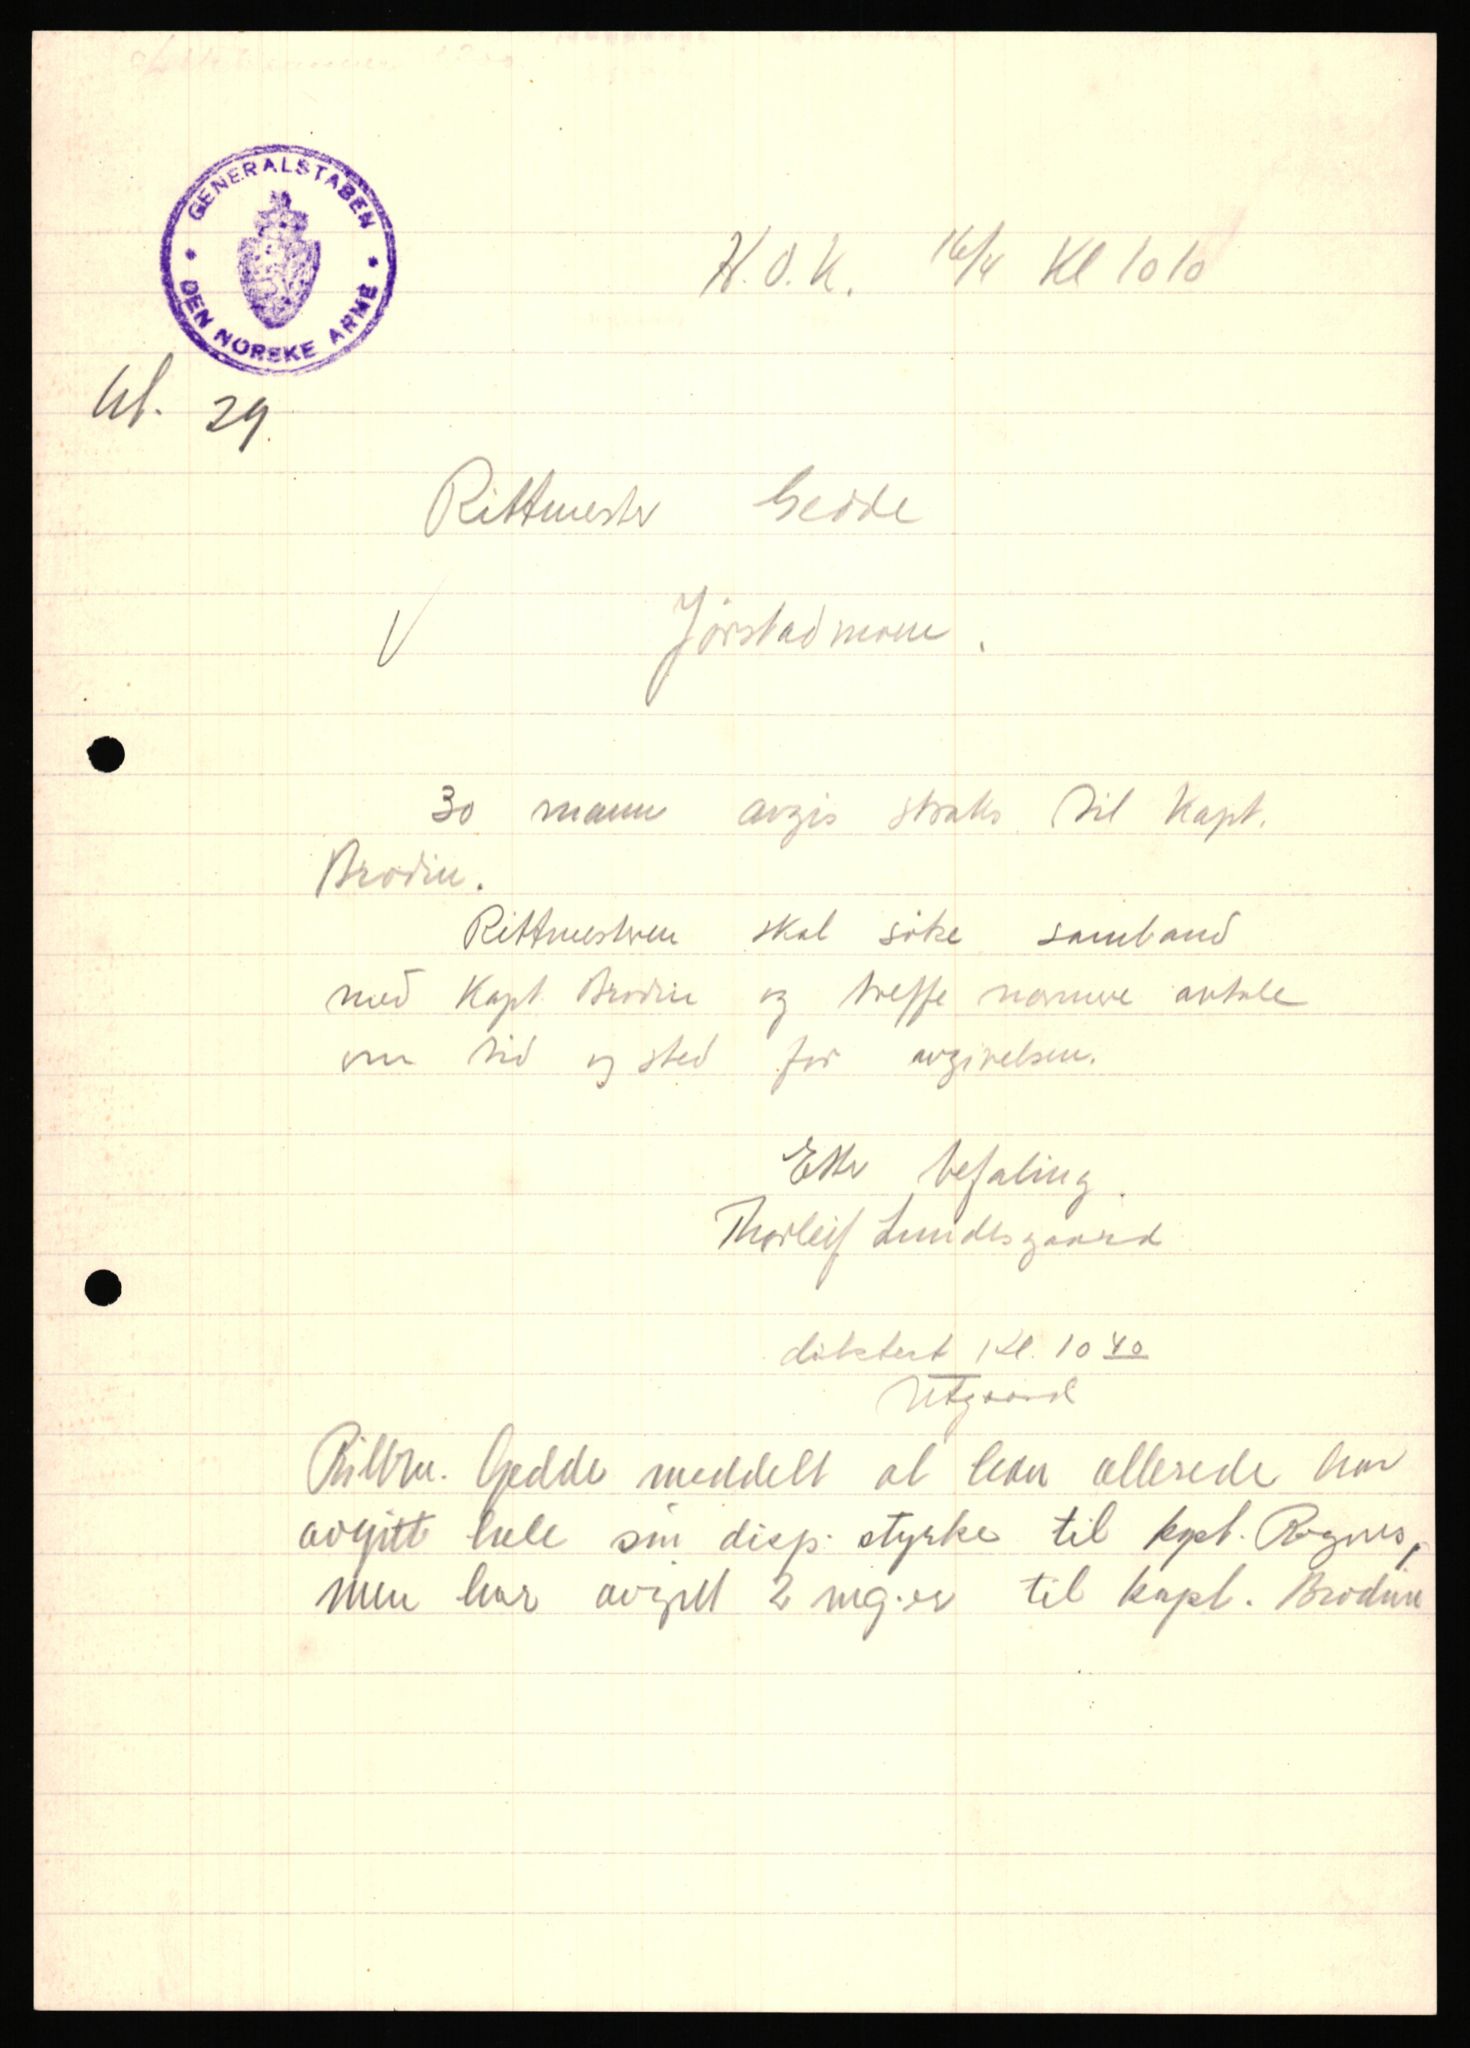 GENERALSTABEN
DEN NORSKE ARME
H.O.K. 16/4 Kl 1010
Ut. 29.
Rittmester Gedde
Jørstadmoen.
30 mann avgis straks til Kapt.
Brodin.
Rittmesteren skal søke samband
med Kapt. Brodin og treffe nærmere avtale
om tid og sted for avgivelsen.
Etter befaling.
Thorleif Lundesgaard
diktert Kl. 10 40
Utgaard
Rittm. Gedde meddelt at han allerede har
avgitt hele sin disp. styrke til kapt. Rognes,
men har avgitt 2 mg.er til kapt. Brodin